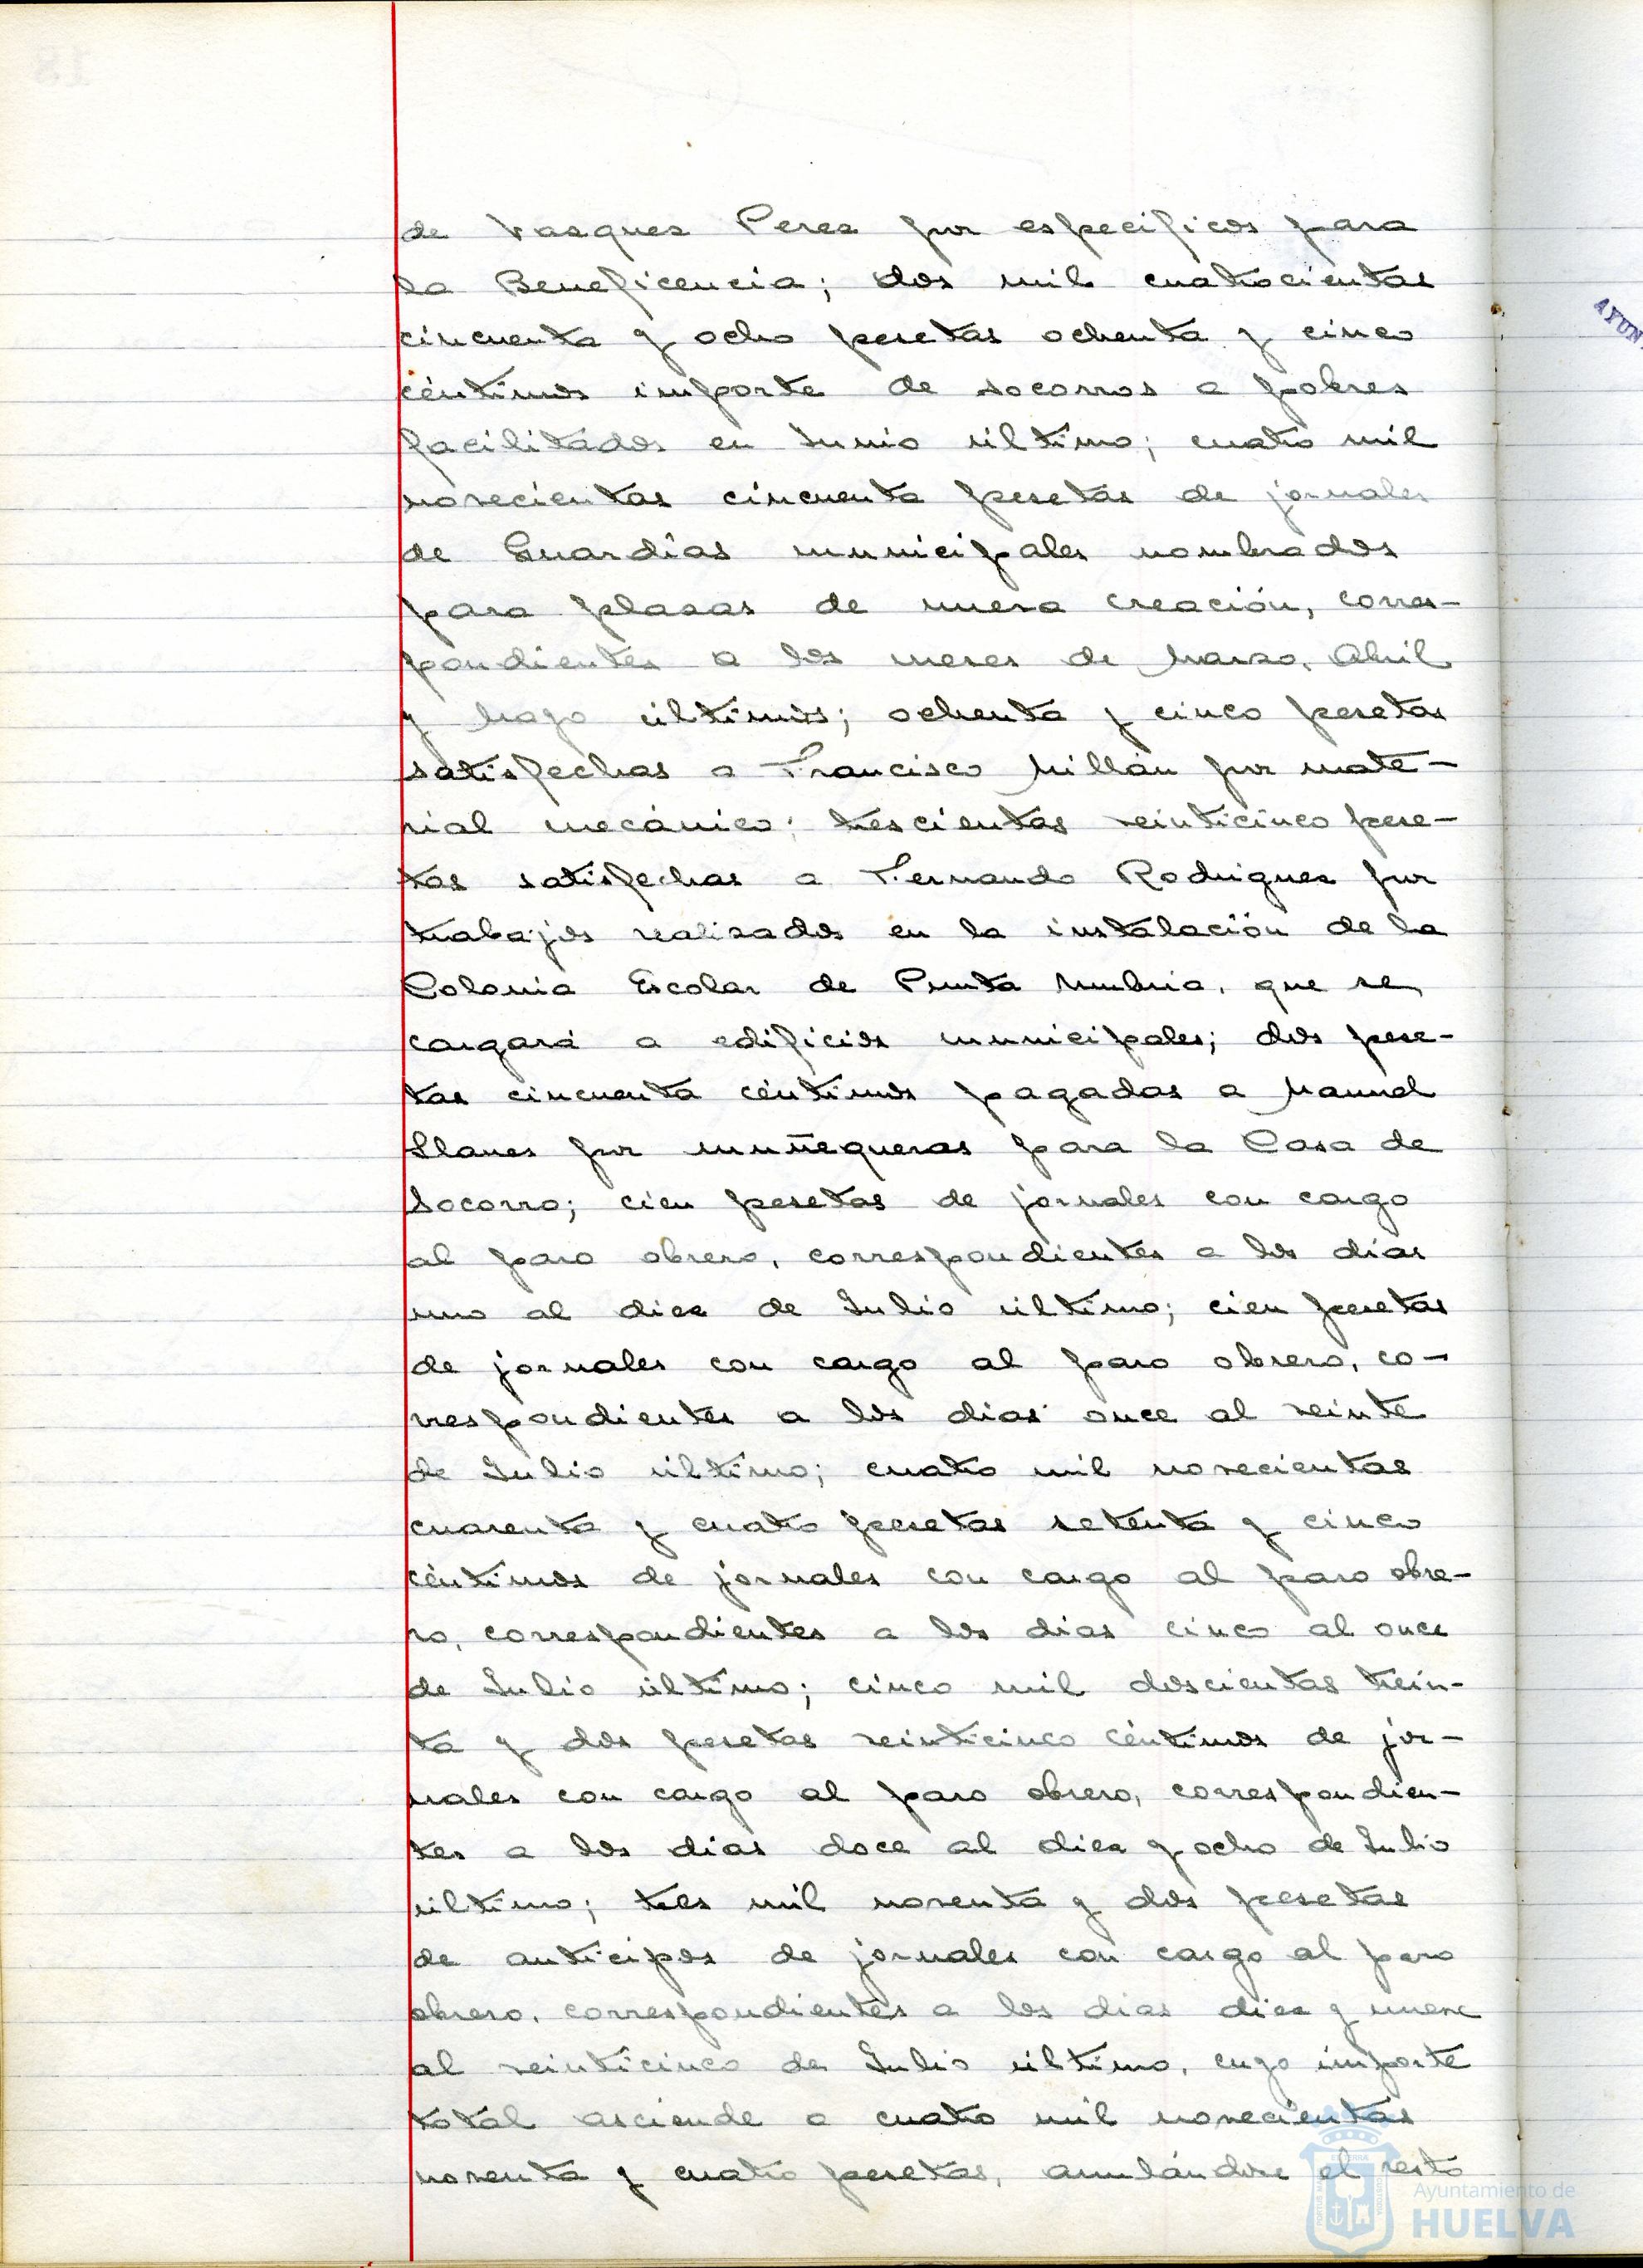 de Vasquez Perez por especificos para
la Beneficencia; dos mil cuatrocientas
cincuenta y ocho pesetas ochenta y cinco
céntimos importe de socorros a pobres
facilitados en Junio último; cuatro mil
novecientas cincuenta pesetas de jornales
de Guardias municipales nombrados
para plazas de nueva creación, corres-
pondientes a los meses de Marzo, Abril
y Mayo últimos; ochenta y cinco pesetas
satisfechas a Francisco Millán por mate-
rial mecánico; trescientas veinticinco pese-
tas satisfechas a Fernando Rodriguez por
trabajos realizados en la instalación de la
Colonia Escolar de Punta Umbria, que se
cargará a edificios municipales; dos pese-
tas cincuenta céntimos pagadas a Manuel
Llanes por muñequeras para la Casa de
Socorro; cien pesetas de jornales con cargo
al paro obrero, correspondientes a los dias
uno al diez de Julio último; cien pesetas
de jornales con cargo al paro obrero, co-
rrespondientes a los dias once al veinte
de Julio último; cuatro mil novecientas
cuarenta y cuatro pesetas setenta y cinco
céntimos de jornales con cargo al paro obre-
ro, correspondientes a los dias cinco al once
de Julio último; cinco mil doscientas trein-
ta y dos pesetas veinticinco céntimos de jor-
nales con cargo al paro obrero, correspondien-
tes a los dias doce al diez y ocho de Julio
último; tres mil noventa y dos pesetas
de anticipos de jornales con cargo al paro
obrero, correspondientes a los dias diez y nueve
al veinticinco de Julio último, cuyo importe
total asciende a cuatro mil novecientas
noventa y cuatro pesetas, anulándose el resto
AYUN
Ayuntamiento de
HUELVA